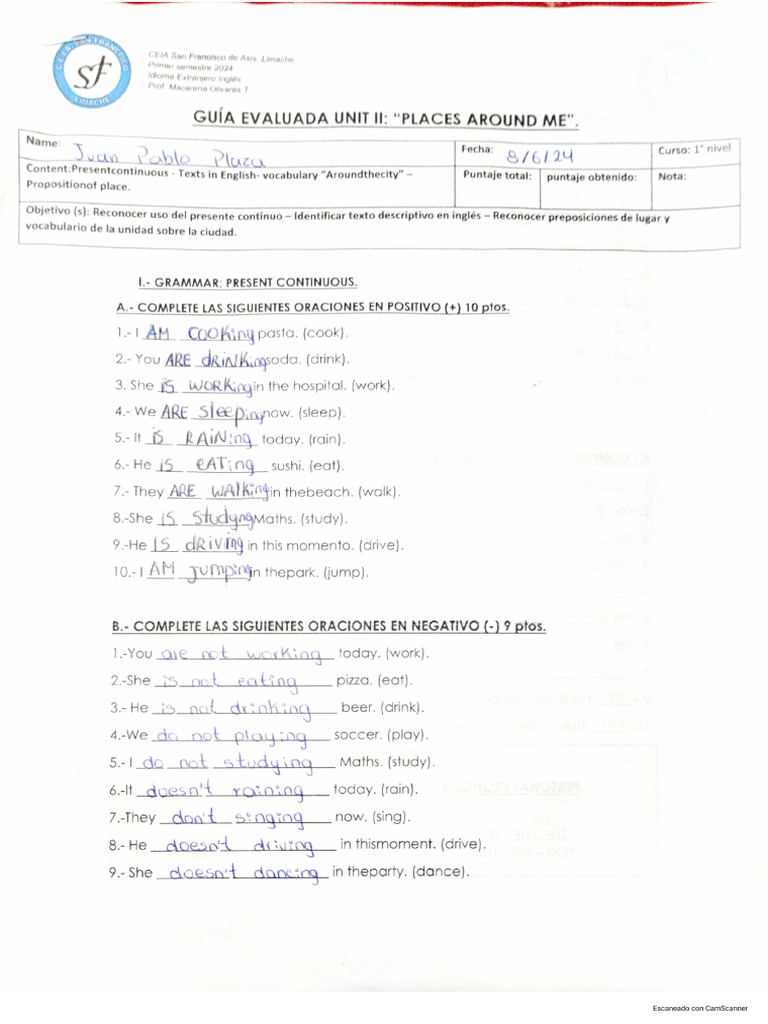 C.E.I.A. SAN FRANCISCO
sf
LIMACHE
CEIA San Francisco de Asis, Limache
Primer semestre 2024
Idioma Extranjero Inglés
Prof. Macarena Olivares T
GUÍA EVALUADA UNIT II: "PLACES AROUND ME".
Name: Juan Pablo Plaza
Fecha: 8/6/24
Curso: 1° nivel
Content:Presentcontinuous - Texts in English- vocabulary "Aroundthecity" –
Propositionof place.
Puntaje total:
puntaje obtenido:
Nota:
Objetivo (s): Reconocer uso del presente continuo – Identificar texto descriptivo en inglés – Reconocer preposiciones de lugar y
vocabulario de la unidad sobre la ciudad.
I.- GRAMMAR: PRESENT CONTINUOUS.
A.- COMPLETE LAS SIGUIENTES ORACIONES EN POSITIVO (+) 10 ptos.
1.- I AM COOKing pasta. (cook).
2.- You ARE dRINKing soda. (drink).
3. She is WORKing in the hospital. (work).
4.- We ARE sleeping now. (sleep).
5.- It is RAINing today. (rain).
6.- He is EATing sushi. (eat).
7.- They ARE WALKing in thebeach. (walk).
8.-She is studyng Maths. (study).
9.-He IS dRIVING in this momento. (drive).
10.- I AM JUMPing in thepark. (jump).
B.- COMPLETE LAS SIGUIENTES ORACIONES EN NEGATIVO (-) 9 ptos.
1.-You are not working today. (work).
2.-She is not eating pizza. (eat).
3.- He is not drinking beer. (drink).
4.-We do not playing soccer. (play).
5.- I do not studying Maths. (study).
6.-It doesn't raining today. (rain).
7.-They don't singing now. (sing).
8.- He doesn't driving in thismoment. (drive).
9.- She doesn't dancing in theparty. (dance).
Escaneado con CamScanner